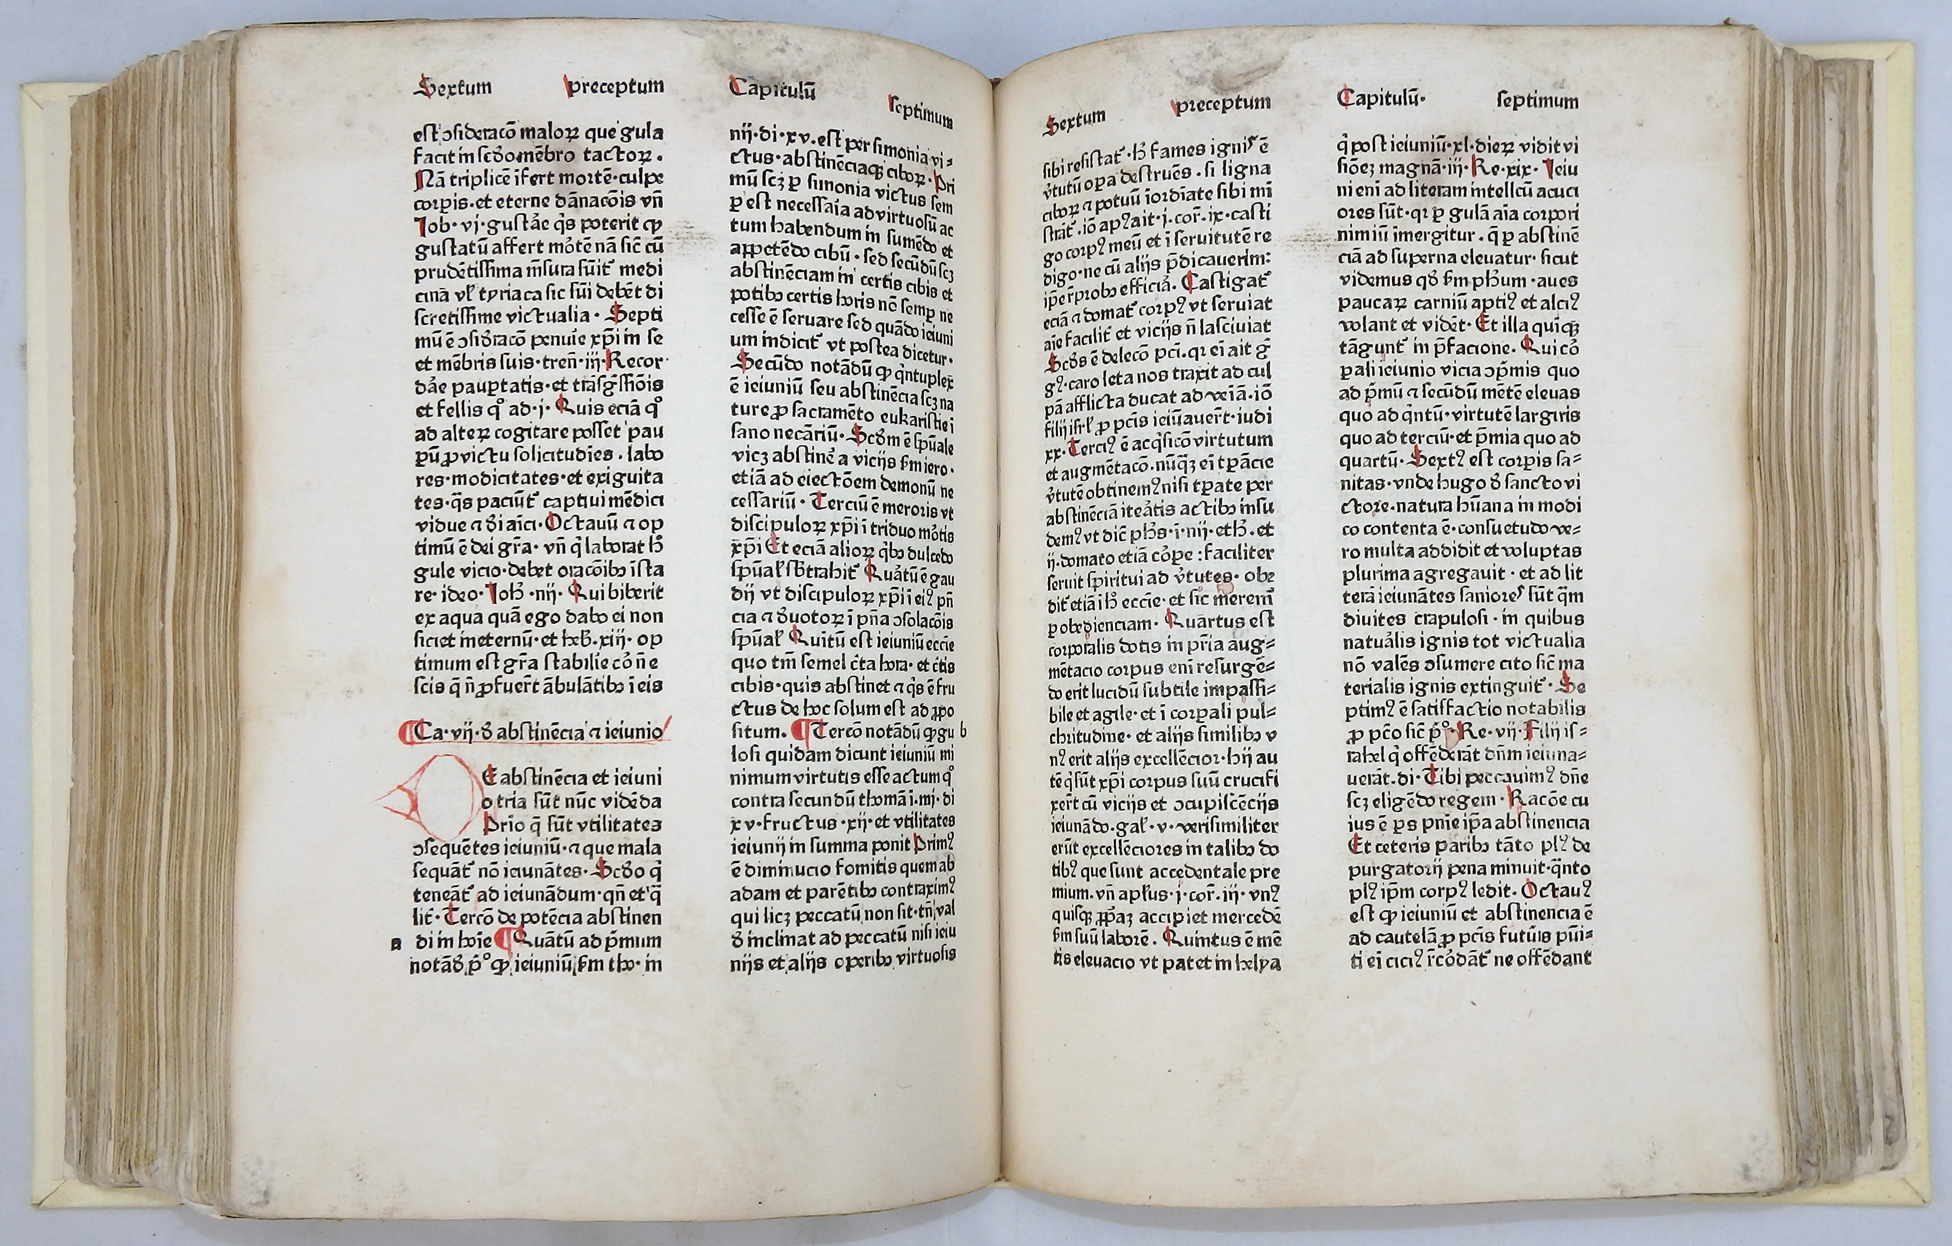 Sextum preceptum
est ↄsideracō maloꝝ que gula
facit in scd̄o mēbro tactoꝝ .
Nā triplicē īfert mortē·culpe
corpis·et eterne dānacōis vn̄
Job·vj·gustāe q̄s poterit qp̄
gustatū affert mōtē nā sic̄ cū
prudētissima m̄sura sūit̄ medi
cinā vl̄ tyriaca sic sūi debēt di
scretissime victualia · Septi
mū ē ↄsid̄racō penuīe xp̄i in se
et mēbris suis·tren̄·iij·Recor
dāe pauꝑtatis·et trāsḡssiōis
et fellis qͦ ad·j·Quis eciā qͦ
ad alteꝝ cogitare posset pau
pū ꝓ victu solicitudīes·labo
res·modicitates·et exiguita
tes·q̄s paciūt̄ captiui mēdici
vidue ⁊ d̄i aīci·Octauū ⁊ op
timū ē dei gr̄a·vn̄ q̄ laborat h̄
gule vicio·debet oracōibꝯ īsta
re·ideo·Joh̄·iiij·Qui biberit
ex aqua quā ego dabo ei non
siciet ineternū·et heb̄·xiij·op
timum est gr̄a stabilie cōn̄e
scis q̄ n̄ ꝓfuer̄t ābulātibꝯ ī eis
Ca·vij·d̄ abstinēcia ⁊ ieiunio
E abstinēcia et ieiuni
o tria sūt nūc vidēda
Prio q̄ sūt vtilitates
ↄsequētes ieiuniū·⁊ que mala
sequāt̄ nō ieiunātes·Scd̄o q̄
teneāt̄ ad ieiunādum·qn̄ et q̄
lit̄·Tercō de potēcia abstinen
a di in hoīe Quātū ad p̄mum
notād̄ p̄ͦ qp̄ ieiuniū s̄m tho·in
Capitulū septimum
iiij·di·xv·est per simonia vi⹀
ctus·abstinēciaqꝫ ciboꝝ·Pri
mū scꝫ ꝑ simonia victus sem
ꝑ est necessaīa ad virtuosū ac
tum habendum in sumēdo et
appetēdo cibū·sed secūdū scꝫ
abstinēciam in certis cibis et
potibꝯ certis horis nō semꝑ ne
cesse ē seruare sed quādo ieiuni
um indicit̄ vt postea dicetur·
Secūdo notādū qp̄ q̄ntuplex
ē ieiuniū seu abstinēcia scꝫ na
ture ꝓ sacramēto eukaristie ī
sano necāriū·Scd̄m ē sp̄uale
vicꝫ abstinē a vicijs s̄m iero·
etiā ad eiectōem demonū ne
cessariū·Terciū ē meroris vt
discipuloꝝ xp̄i ī triduo mōtis
xp̄i Et eciā alioꝝ q̄bꝯ dulcedo
sp̄ual̄ sb̄trahit̄ Quātū ē gau
dij vt discipuloꝝ xp̄i ī eiꝰ pn̄
cia ⁊ d̄uotoꝝ ī pn̄a ↄsolacōis
sp̄ual̄ Quītū est ieiuniū eccīe
quo tm̄ semel c̄ta hora·et c̄tis
cibis·quis abstinet ⁊ q̄s ē fru
ctus de hoc solum est ad ꝓpo
situm. Tercō notādū qp̄ gu b
losi quidam dicunt ieiuniū mi
nimum virtutis esse actum qͦ
contra secundū thomā·i·iiij·di
xv·fructus·xij·et vtilitates
ieiunij in summa ponit Primꝰ
ē diminucio fomitis quem ab
adam et parētibꝯ contraximꝰ
qui licꝫ peccatū non sit·tn̄ val
d̄ inclinat ad peccatū nisi ieiu
niis et alijs operibꝯ virtuosis
Sextum preceptum
sibi resistat̄·h̄ fames ignis ē
v̄tutū oꝑa destruēs·si ligna
ciboꝝ ⁊ potuū īordīate sibi mī
strāt̄·iō apꝰ ait·j·cor̄·ix·casti
go corpꝰ meū et ī seruitutē re
digo·ne cū alijs p̄dicauerim:
ip̄e r̄probꝯ efficiā. Castigat̄
eciā ⁊ domat̄ corpꝰ vt seruiat
aīe facilit̄ et vicijs n̄ lasciuiat
Scd̄s ē delecō pcī.qr eī ait ḡ
gꝰ·caro leta nos traxit ad cul
pā afflicta ducat ad veīā·iō
filij isrl̄ ꝓ pcīs ieiūauer̄t·iudi
xx·Terciꝰ ē acq̄sicō virtutum
et augmētacō·nūqꝫ eī tꝑācie
v̄tutē obtinemꝰ nisi tꝑate per
abstinēciā iteātis actibꝯ insu
demꝰ vt dic̄ ph̄s·i·iiij·eth̄·et
ij·domato etiā cōꝑe : faciliter
seruit spiritui ad v̄tutes· obe
dit̄ etiā ī h̄ eccīe·et sic̄ merem̄
ꝑ obedienciam·Quartus est
corporalis dotis in pr̄ia aug⹀
mētacio corpus enī resurgē⹀
do erit lucidū subtile impassi⹀
bile et agile·et ī corꝑali pul⹀
chritudine·et alijs similibꝯ v
nꝰ erit alijs excellēcior·hij au
tē q̄ sūt xp̄i corpus suū crucifi
xer̄t cū vicijs et ↄcupiscēcijs
ieiunādo·gal̄·v·verisimiliter
erūt excellēciores in talibꝯ do
tibꝰ que sunt accedentale pre
mium·vn̄ apl̄us·j·cor̄·iij·vnꝰ
quisqꝫ ꝓpaꝫ accipiet mercedē
s̄m suū laborē. Quintus ē mē
tis eleuacio vt patet in helya
Capitulū· septimum
q̄ post ieiuniū·xl·dieꝝ vidit vi
siōeꝫ magnā·iij·Re·xix· Jeiu
ni eni ad literam intellcū acuci
ores sūt·qr ꝑ gulā aīa corpori
nimiū īmergitur·q̄ ꝑ abstinē
ciā ad superna eleuatur·sicut
videmus qd̄ s̄m ph̄um·aues
paucaꝝ carniū aptiꝰ et alciꝰ
volant et vidēt·Et illa quīqꝫ
tāgunt̄ in p̄facione. Qui cō
ꝑali ieiunio vicia ↄp̄mis quo
ad p̄mū ⁊ secūdū mētē eleuas
quo ad q̄ntū·virtutē largiris
quo ad terciū·et p̄mia quo ad
quartū·Sextꝰ est corpis sa⹀
nitas·vnde hugo d̄ sancto vi
ctore·natura hūana in modi
co contenta ē·consuetudo ve⹀
ro multa addidit et voluptas
plurima agregauit·et ad lit
terā ieiunātes saniores sūt q̄m
diuites crapulosi·in quibus
natuālis ignis tot victualia
nō valēs ↄsumere cito sic̄ ma
terialis ignis extinguit̄·Se
ptimꝰ ē satisfactio notabilis
ꝓ pc̄o sic̄ p̄ͦ·j·Re·vij·Filij is⹀
rahel q̄ offēderāt dn̄m ieiuna⹀
uerāt·di·Tibi peccauimꝰ dn̄e
scꝫ eligēdo regem·Racōe cu
ius ē p̄s pnīe ip̄a abstinencia
Et ceteris paribꝯ tāto plꝰ de
purgatorij pena minuit·q̄nto
plꝰ ip̄m corpꝰ ledit. Octauꝰ
est qp̄ ieiuniū et abstinencia ē
ad cautelā ꝓ pcīs futūis pūi⹀
ti eī ciciꝰ r̄cōdāt̄ ne offēdant